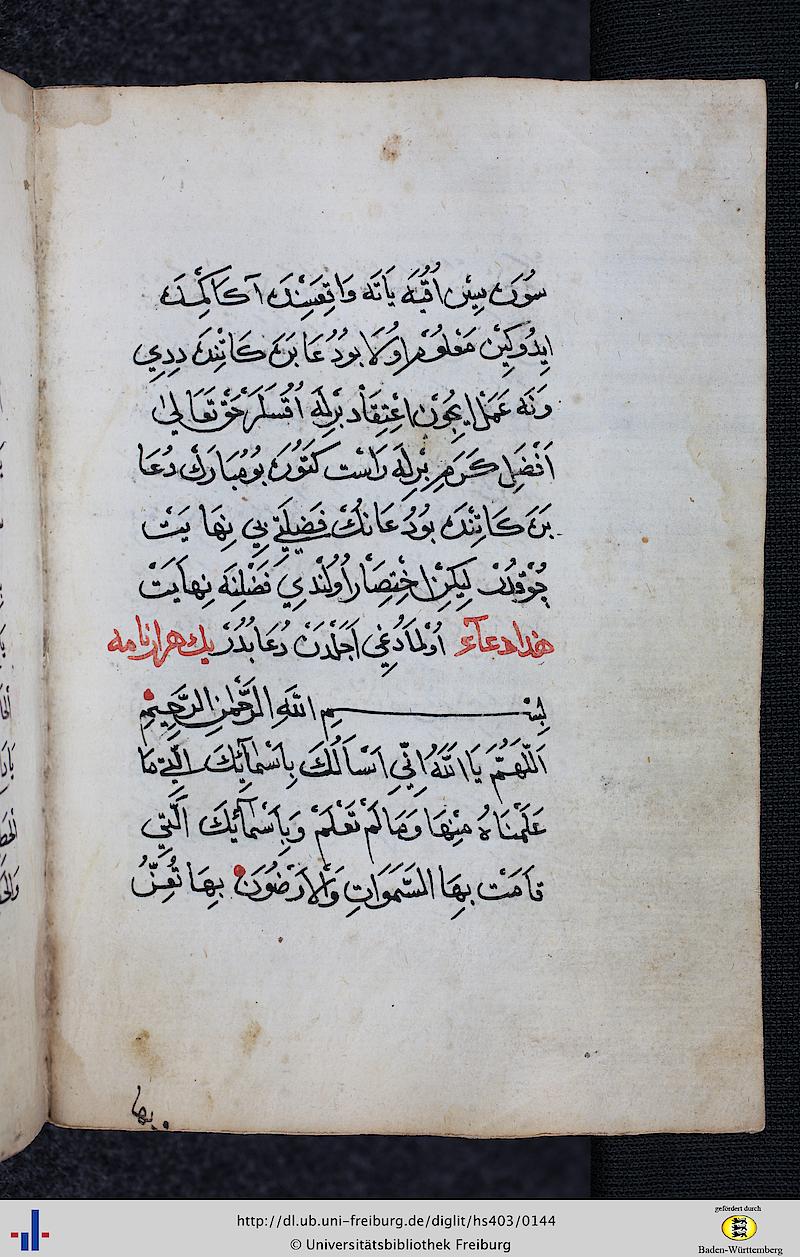 سُورَۀ يٰسٓ اُقُيَه يَاتَه وَاقِعَسِنْدَه آكَا كَلْمَدَه
اِيدُوكِنْ مَعْلُومْ اوُلَا بُو دُعَا بَرَكَاتِنْدَه دِدِي
وَنَه عَمَلْ اِيچُونْ اِعْتِقَاد بِرْلَه اُقُسَلَرْ حَقْ تَعَالىٰ
اَفْضَل كَرَمِ بِرْلَه رَاسْت كَتُورَه بُو مُبَارَكْ دُعَا
بَرَكَاتِنْدَه بُو دُعَانُكْ فَضِيلَتِي بِي نِهَايَتْ
چُوقْدُرْ لِيكِنْ اِخْتِصَار اُولُنْدِي فَضْلِنَه نِهَايَتْ
هذا دعآء اُولْمَادُغِي اَجَلْدَنْ دُعَا بُدُرْ بيك هزار نامه
بِسْمِ اللّٰهِ الرَّحْمٰنِ الرَّحِيمِ
اَللّٰهُمَّ يَا اَللّٰهُ اِنِّي اَسْاَلُكَ بِاَسْمَآئِكَ الَّتِي مَا
عَلِمْنَاهُ مِنْهَا وَمَا لَمْ نَعْلَمْ وَبِاَسْمَآئِكَ الَّتِي
قَامَتْ بِهَا السَّمَوَاتِ وَالْاَرَضُونَ بِهَا تُعِزُّ
بها
http://dl.ub.uni-freiburg.de/diglit/hs403/0144
© Universitätsbibliothek Freiburg
gefördert durch
Baden-Württemberg